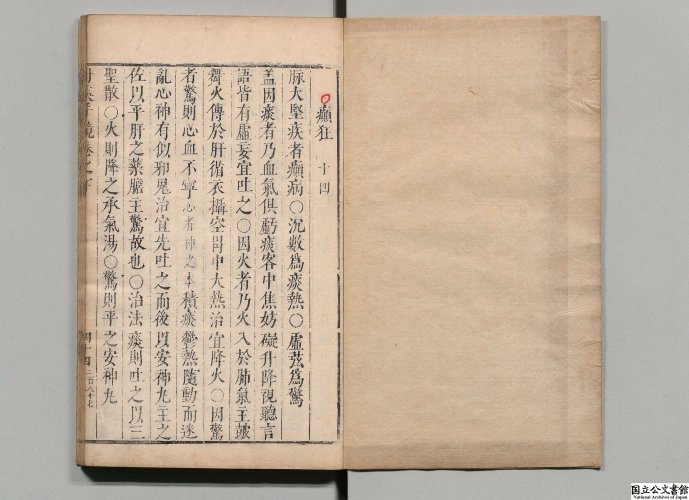 癲狂 十四
脉大堅疾者癲病○沉數爲痰熱○虛弦爲驚
蓋因痰者乃血氣俱虧痰客中焦妨礙升降視聽言
語皆有虛妄宜吐之○因火者乃火入於肺氣主鼓
舞火傳於肝循衣攝空胃中大熱治宜降火○因驚
者驚則心血不寧心者神之本積痰鬱熱隨動而迷
亂心神有似邪鬼治宜先吐之而後以安神丸主之
佐以平肝之藥膽主驚故也○治法痰則吐之以三
聖散○火則降之承氣湯○驚則平之安神丸
手鏡卷之下 四十四 三百八十七
国立公文書館
National Archives of Japan